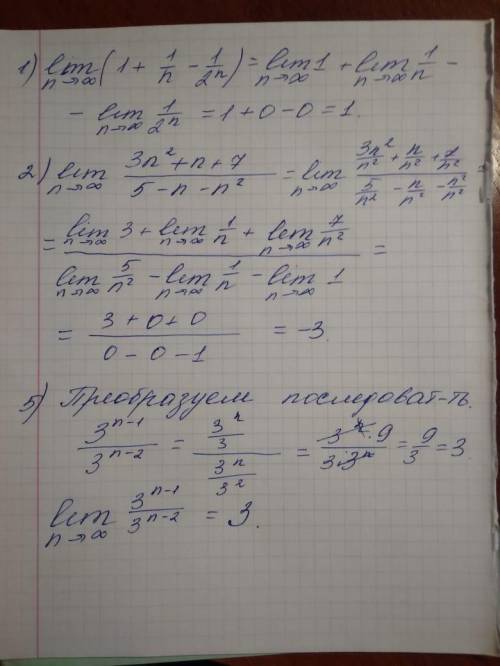 1) lim n→∞ (1 + 1/n - 1/2ⁿ) = lim n→∞ 1 + lim n→∞ 1/n -
- lim n→∞ 1/2ⁿ = 1 + 0 - 0 = 1.
2) lim n→∞ (3n² + n + 7)/(5 - n - n²) = lim n→∞ (3n²/n² + n/n² + 7/n²)/(5/n² - n/n² - n²/n²) =
= (lim n→∞ 3 + lim n→∞ 1/n + lim n→∞ 7/n²)/(lim n→∞ 5/n² - lim n→∞ 1/n - lim n→∞ 1) =
= (3 + 0 + 0)/(0 - 0 - 1) = -3.
5) Преобразуем последоват-ть.
3ⁿ⁻¹/3ⁿ⁻² = (3ⁿ/3)/(3ⁿ/3²) = (3ⁿ·9)/(3·3ⁿ) = 9/3 = 3.
lim n→∞ 3ⁿ⁻¹/3ⁿ⁻² = 3.